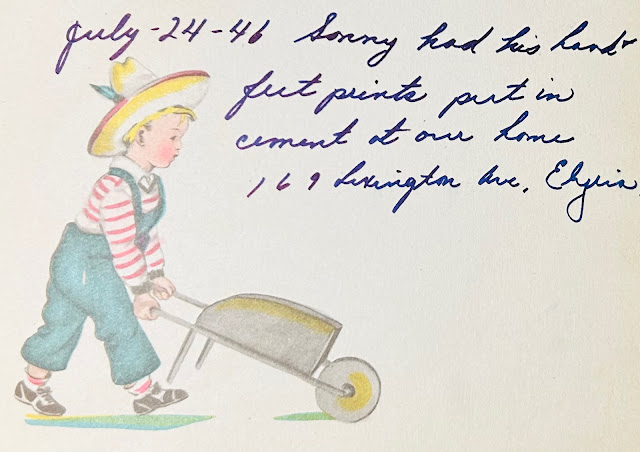 July-24-46 Sonny had his hand &
feet prints put in
cement at our home
169 Lexington Ave, Elyria